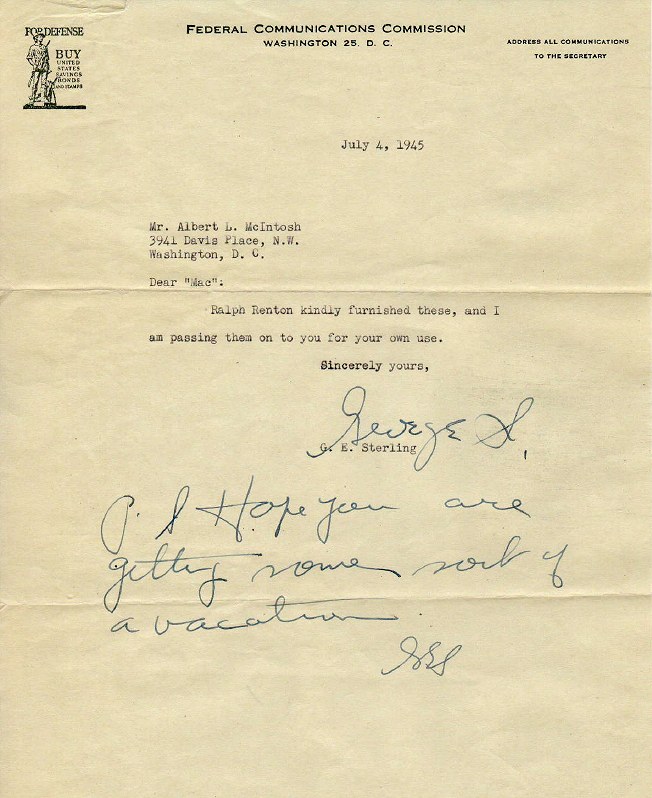 FOR DEFENSE
BUY
UNITED
STATES
SAVINGS
BONDS
AND STAMPS
FEDERAL COMMUNICATIONS COMMISSION
WASHINGTON 25, D. C.
ADDRESS ALL COMMUNICATIONS
TO THE SECRETARY
July 4, 1945
Mr. Albert L. McIntosh
3941 Davis Place, N.W.
Washington, D. C.
Dear "Mac":
Ralph Renton kindly furnished these, and I
am passing them on to you for your own use.
Sincerely yours,
George S.
G. E. Sterling
P. S Hope you are
getting some sort of
a vacation.
GES